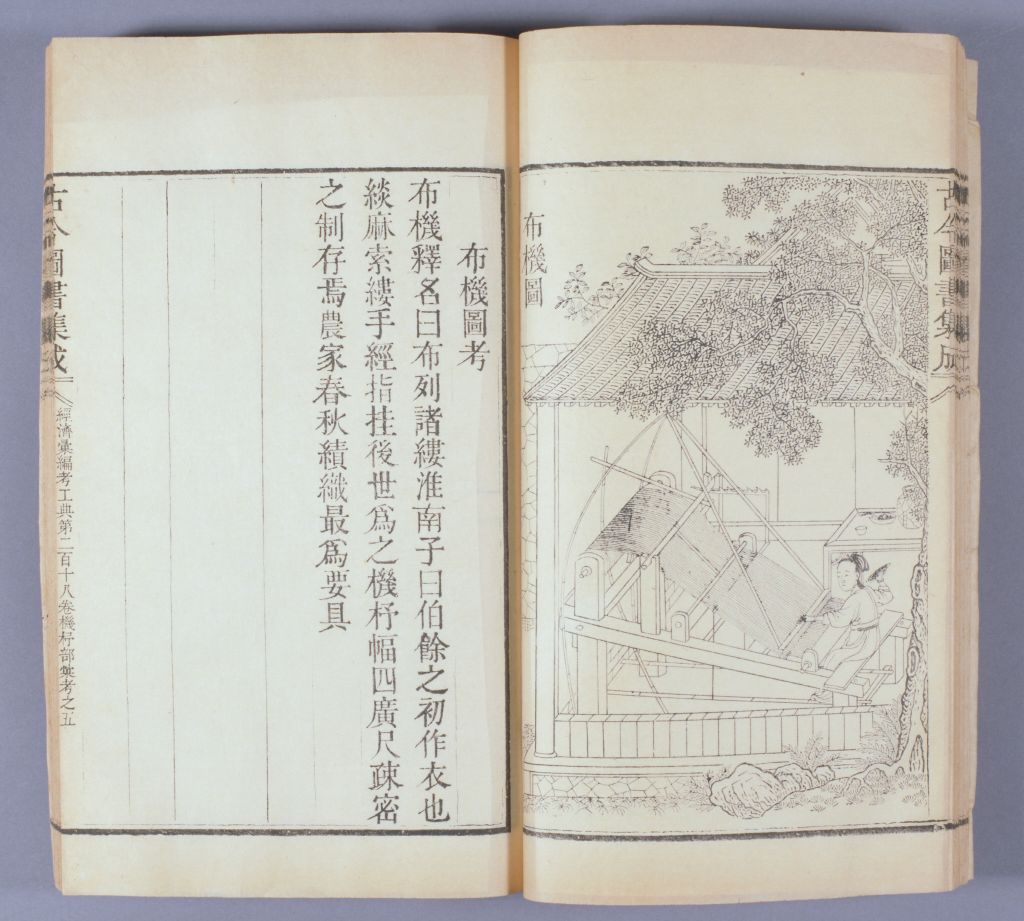 古今圖書集成
布機圖
布機圖考
布機釋名曰布列諸縷淮南子曰伯餘之初作衣也
緂麻索縷手經指挂後世爲之機杼幅匹廣尺疎密
之制存焉農家春秋績織最爲要具
古今圖書集成
經濟彙編考工典第二百十八卷機杼部彙考之五